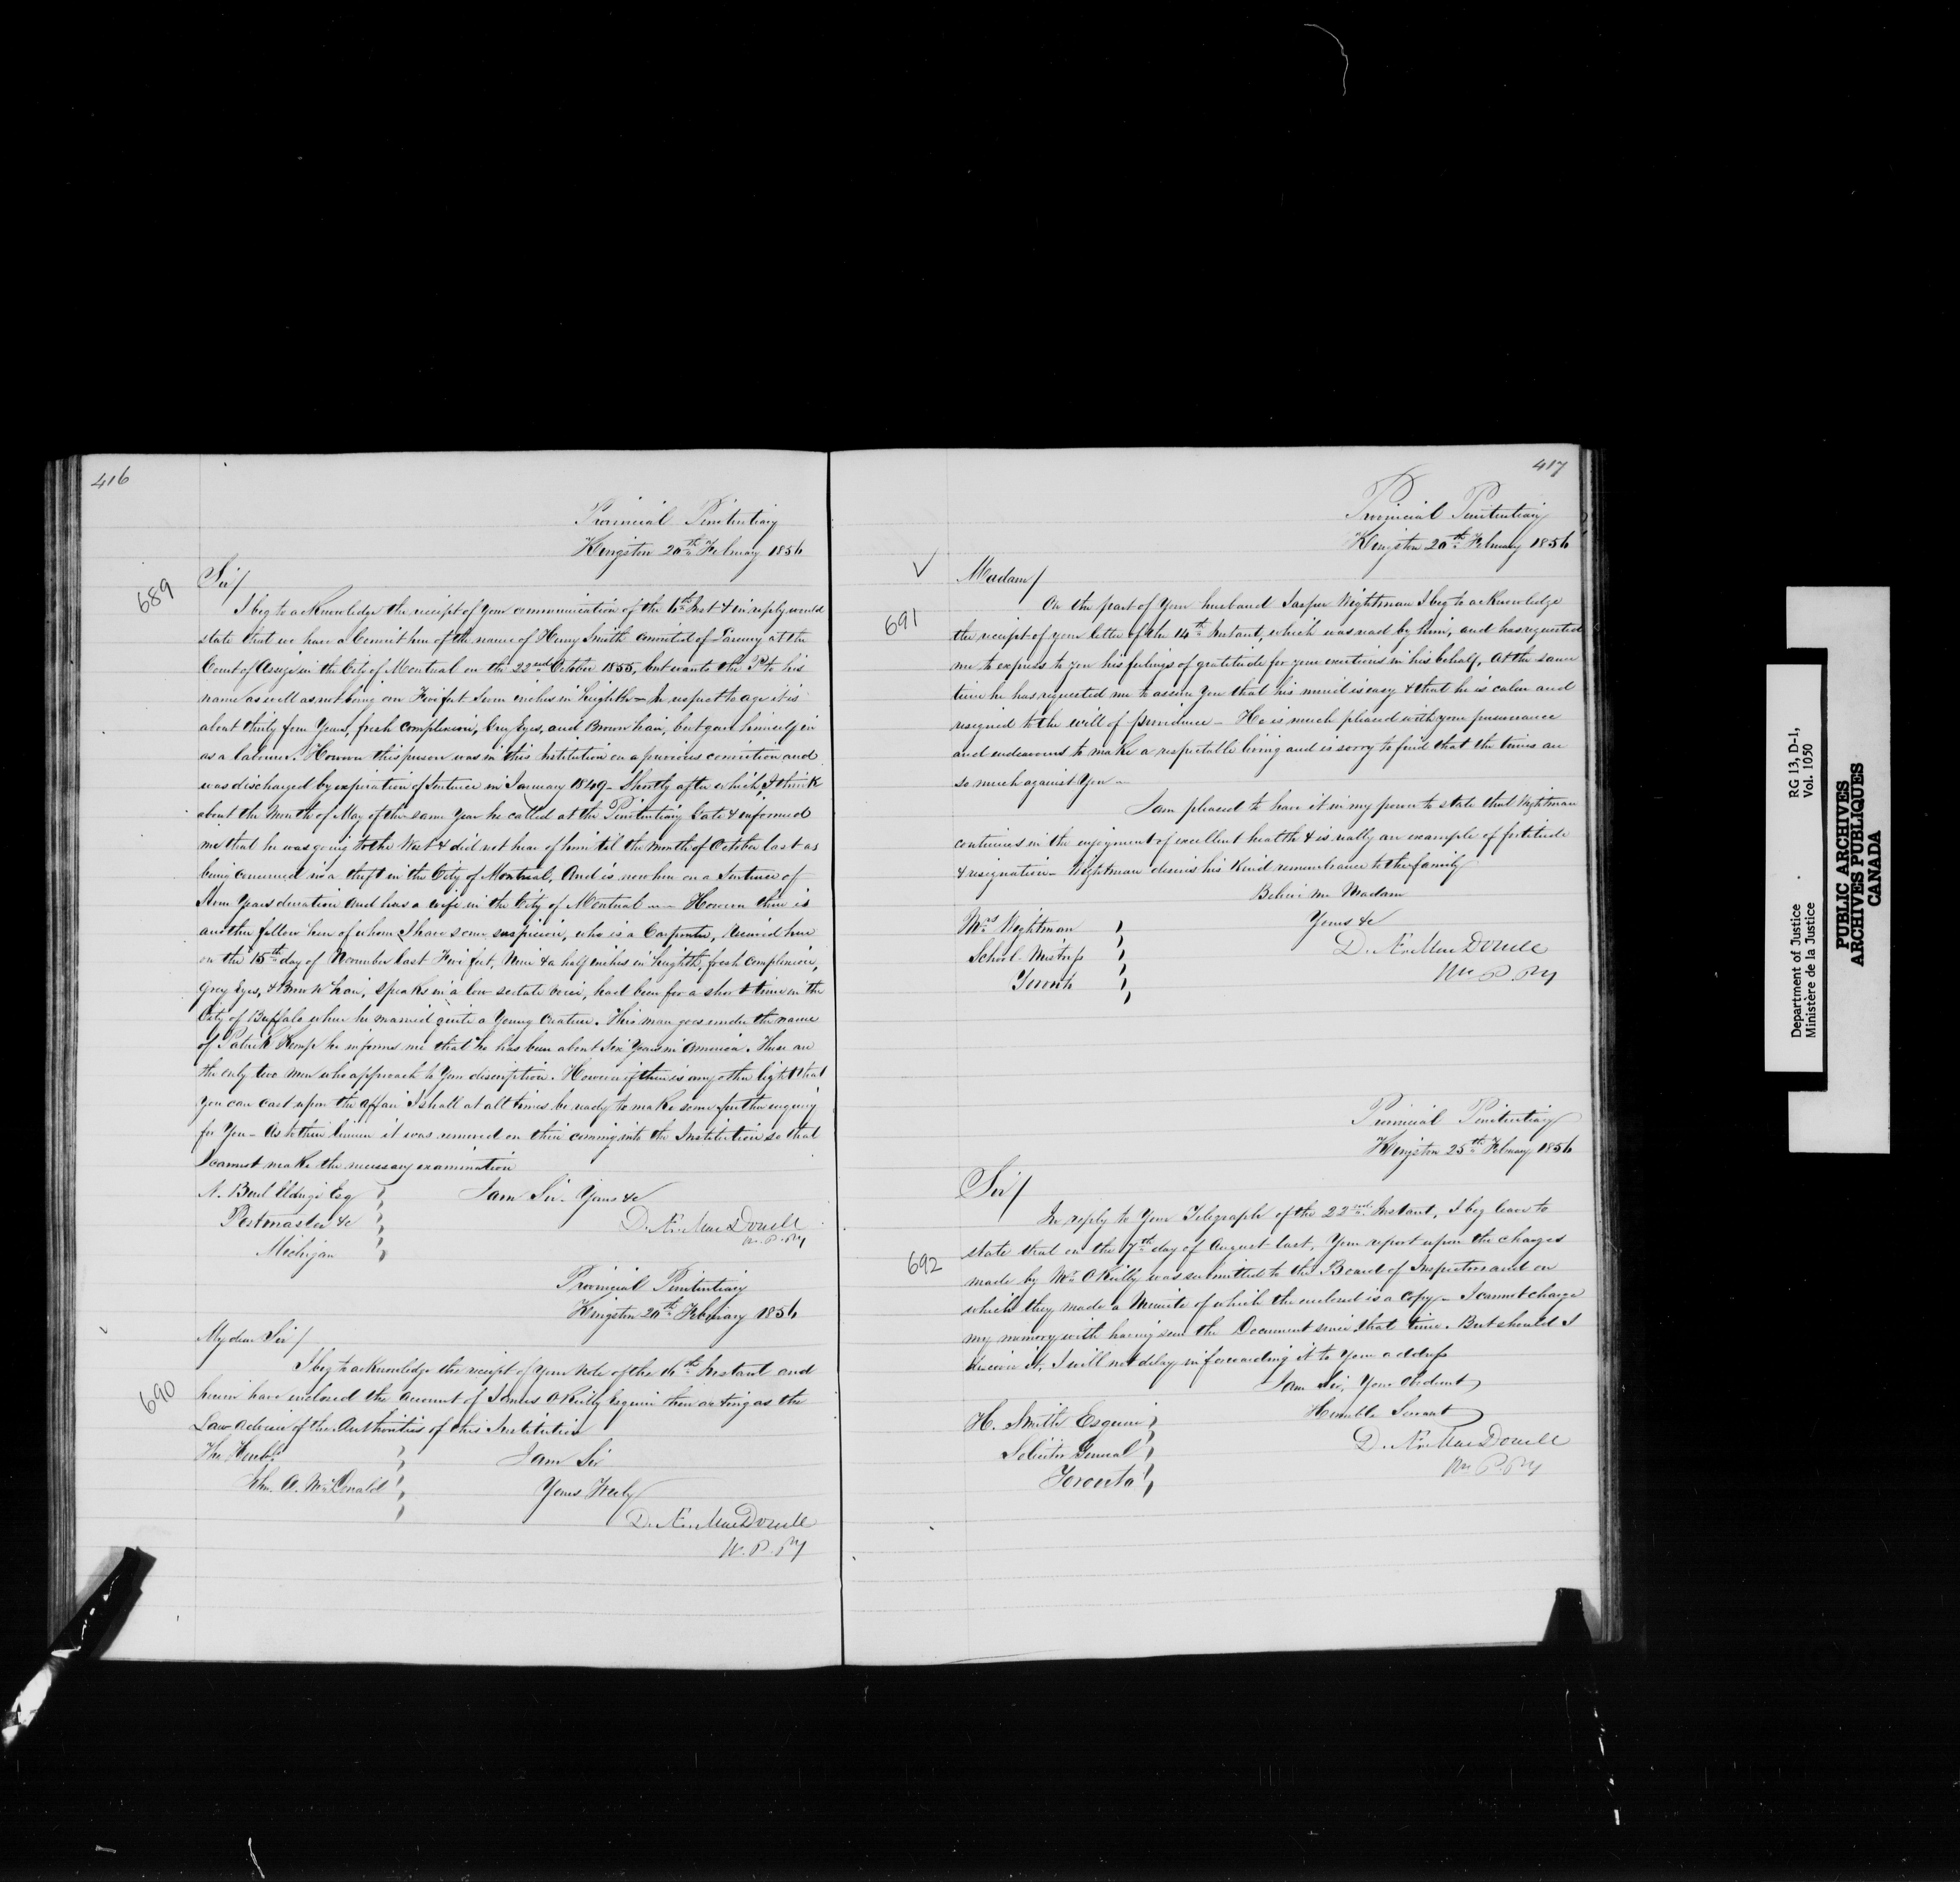 416
Provincial Penitentiary
Kingston 20th February 1856
689
Sir/
I beg to acknowledge the receipt of your communication of the 6th Inst & in reply would
state that we have a Convict here of the name of Henry Smith convicted of Larceny at the
Court of Assize in the City of Montreal on the 22nd October 1855, but wants the P to his
name as well as not being over Five feet Seven inches in heighth — In respect to age it is
about thirty four Years, fresh Complexion, Grey Eyes, and Brown hair, but gave himself in
as a laborer. However this person was in this Institution on a previous conviction and
was discharged by expiration of Sentence in January 1849 — Shortly after which, I think
about the Month of May of the same Year he called at the Penitentiary Gate & informed
me that he was going to the West & did not hear of him til the month of October last as
being concerned in a theft in the City of Montreal, And is now here on a Sentence of
Years duration and has a wife in the City of Montreal — However there is
another fellow here of whom I have some suspicion, who is a Carpenter, received here
on the 15th day of November last Five feet, Nine & a half inches in heighth, fresh complexion,
Grey Eyes, & Brown hair, speaks in a low voice, had been for a short time in the
City of Buffalo where he married quite a Young creature. This man goes under the name
of Patrick Kemp he informs me that he has been about Six Years in America. These are
the only two Men who approach to Your discription. However if there is any other light that
you can cast upon the affair I shall at all times be ready to make some further enquiry
for You — As to their linnen it was removed on their coming into the Institution so that
I cannot make the necessary examination
I am Sir. Yours &c
N. Buel Eldridge Esq
Postmaster &c
Michigan
D. Æ. MacDonell
W. P. Py
Provincial Penitentiary
Kingston 20th February 1856
690
My dear Sir/
I beg to acknowledge the receipt of Your Note of the 16th Instant and
herein have enclosed the account of James O'Reilly Esquire then acting as the
Law adviser of the Authorities of this Institution
The Honble
John. A. McDonald
I am Sir
Yours Truly
D. Æ. MacDonell
W. P. Py
417
Provincial Penitentiary
Kingston 20th February 1856
691
Madam/
On the part of Your husband Jasper Wightman I beg to acknowledge
the receipt of your letter of the 14th Instant, which was read by him, and has requested
me to express to you his feelings of gratitude for your exertions in his behalf, At the same
time he has requested me to assure you that his mind is easy & that he is calm and
resigned to the will of providence — He is much pleased with your
and endeavours to make a respectable living and is sorry to find that the times are
so much against You —
I am pleased to have it in my power to state that Wightman
continues in the enjoyment of excellent health & is really an example of fortitude
& resignation — Wightman desires his kind remembrance to the family
Believe me Madam
Yours &c
Mrs Wightman
School-Mistress
Toronto
D. Æ. MacDonell
W. P. Py
Provincial Penitentiary
Kingston 25th February 1856
692
Sir/
In reply to Your Telegraph of the 22nd Instant, I beg leave to
state that on the 7th day of August last, Your report upon the charges
made by Mr. O'Reilly was submitted to the Board of Inspectors and on
which they made a Minute of which the enclosed is a Copy — I cannot charge
my memory with having seen the Document since that time. But should I
receive it, I will not delay in forwarding it to Your address
I am Sir, Your Obedient
Humble Servant
H. Smith Esquire
Solicitor General
Toronto
D. Æ. MacDonell
W. P. Py
Department of Justice
Ministère de la Justice
RG 13, D-1,
Vol. 1050
PUBLIC ARCHIVES
ARCHIVES PUBLIQUES
CANADA